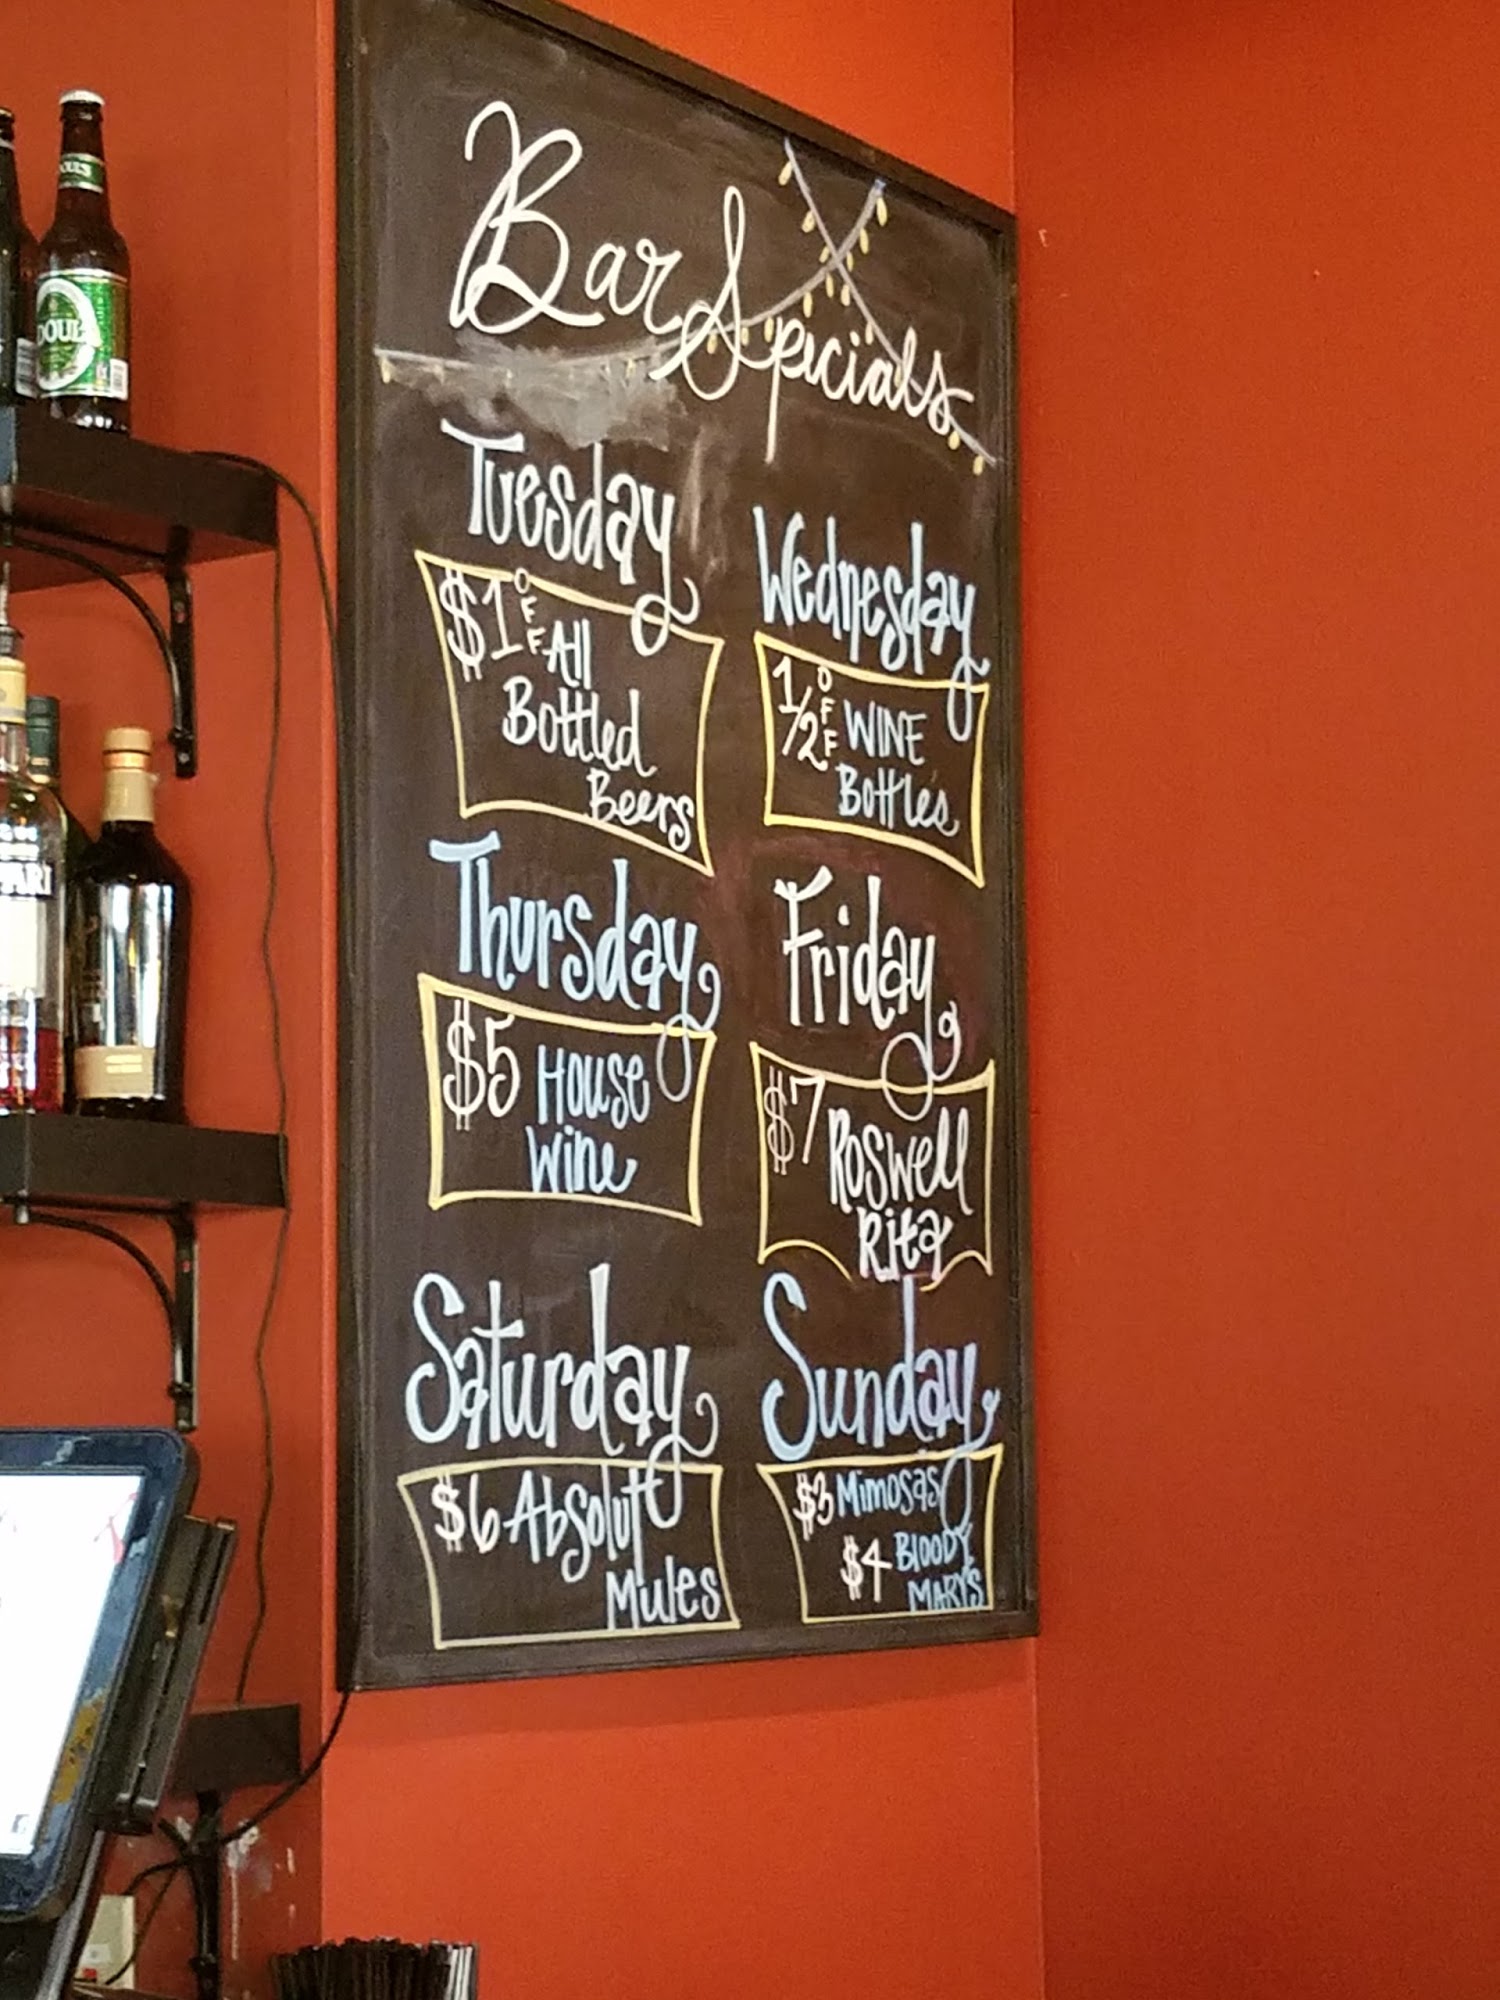 Bar Specials
Tuesday
$1 OFF All
Bottled
Beers
Wednesday
1/2 OFF WINE
Bottles
Thursday
$5 House
Wine
Friday
$7 Roswell
Rita
Saturday
$6 Absolut
Mules
Sunday
$3 Mimosas
$4 Bloody
MARYS